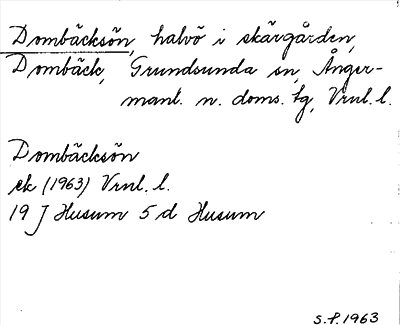 Dombäcksön, halvö i skärgården,
Dombäck, Grundsunda sn, Ånger-
manl. n. doms. tg, Vrnl. l.
Dombäcksön
ek (1963) Vrnl. l.
19 J Husum 5 d Husum
S.f. 1963